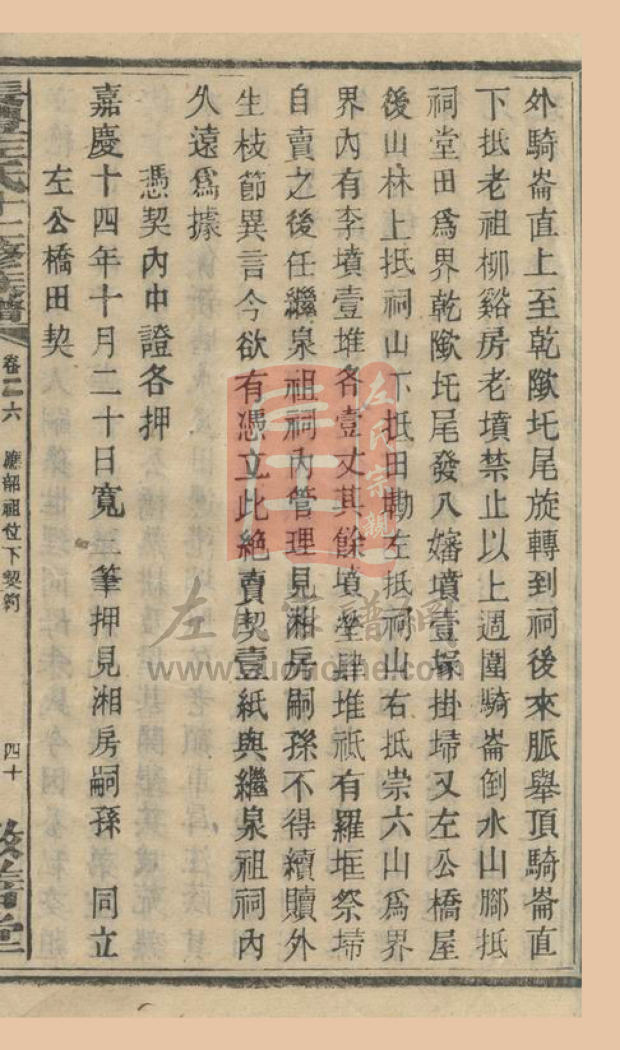 外騎崙直上至乾陬圫尾旋轉到祠後來脈舉頂騎崙直
下抵老祖柳谿房老墳禁止以上週圍騎崙倒水山腳抵
祠堂田爲界乾陬圫尾發八嬸墳壹塚掛埽又左公橋屋
後山林上抵祠山下抵田勘左抵祠山右抵崇六山爲界
界內有李墳壹堆各壹丈其餘墳塋肆堆祗有羅垇祭埽
自賣之後任繼泉祖祠內管理見湘房嗣孫不得續贖外
生枝節異言今欲有憑立此絶賣契壹紙與繼泉祖祠內
久遠爲據
憑契內中證各押
嘉慶十四年十月二十日寬一筆押見湘房嗣孫 同立
左公橋田契
卷二六 應韶祖位下契約 四十
左氏宗親
左氏家譜網